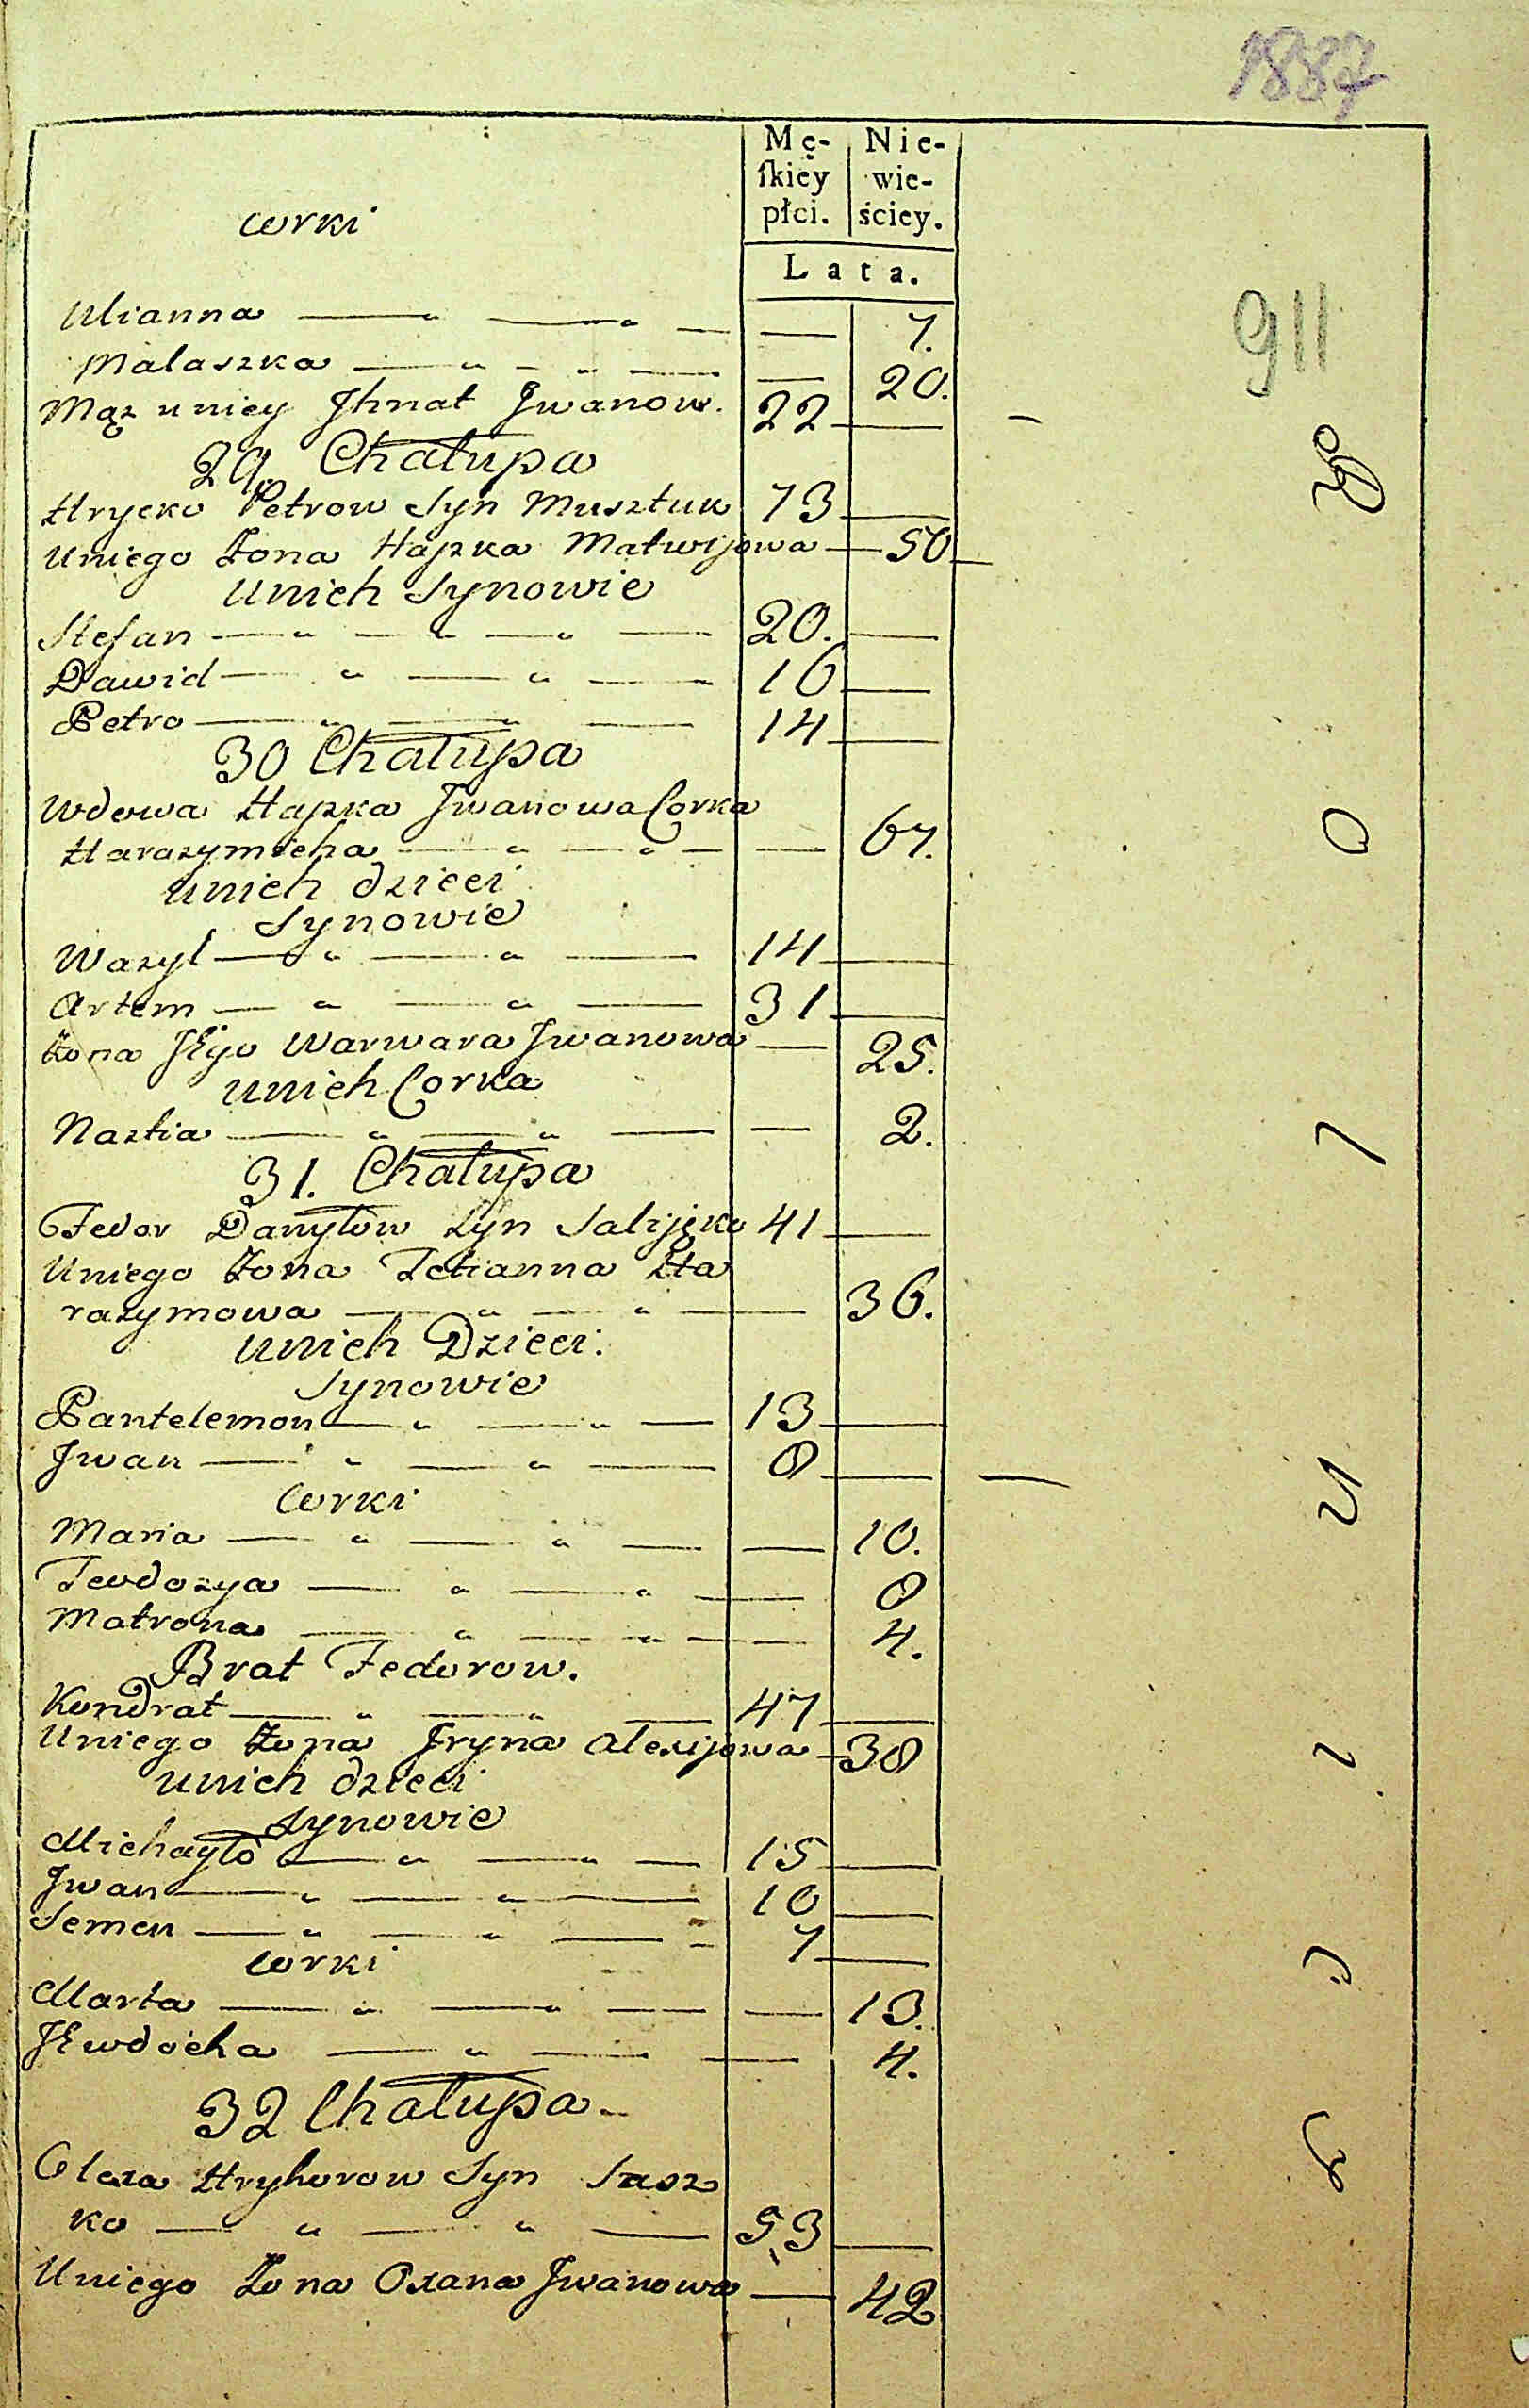 1887
Mę- Nie-
ſkiéy wie-
płci. ściey.
corki
Lata.
911
Ulianna — " — " — — 7.
Malaszka — " — " — — 20.
Mąz u niey Jhnat Jwanow. 22 —
29. Chałupa
Hrycko Petrow Syn Musztuk 73 —
Uniego Zona Hapka Matwijowa — 50
Unich Synowie
Stefan — " — " — " — 20. —
Dawid — " — " — 16 —
Petro — " — " — 14 —
30 Chałupa
Wdowa Hapka Jwanowa Corka
Harasymicha — " — " — — 67.
unich dzieci
Synowie
Wasyl — " — " — 14 —
Artem — " — " — 31 —
Zona JEgo Warwara Jwanowa — 25.
unich Corka
Nastia — " — " — — 2.
31. Chałupa
Fedor Danyłow Syn 41 —
Uniego Zona Tetianna Ha
rasymowa — " — " — 36.
unich Dzieci:
Synowie
Pantelemon — " — " — 13 —
Jwan — " — " — 8 —
Corki
Maria — " — " — — 10.
Teodozya — " — " — 8
Matrona — " — " — — 4.
Brat Fedorow.
Kondrat — " — " — 47 —
Uniego Zona Jryna Alexijowa — 38
unich dzieci
Synowie
Michayło — " — " — 15 —
Jwan — " — " — 10 —
Semen — " — " — 7 —
corki
Marta — " — " — — 13.
JEwdocha — " — — 4.
32 Chałupa
Olexa Hryhorow Syn Sasz
ko — " — " — 53 —
Uniego Zona Oxana Jwanowa — 42